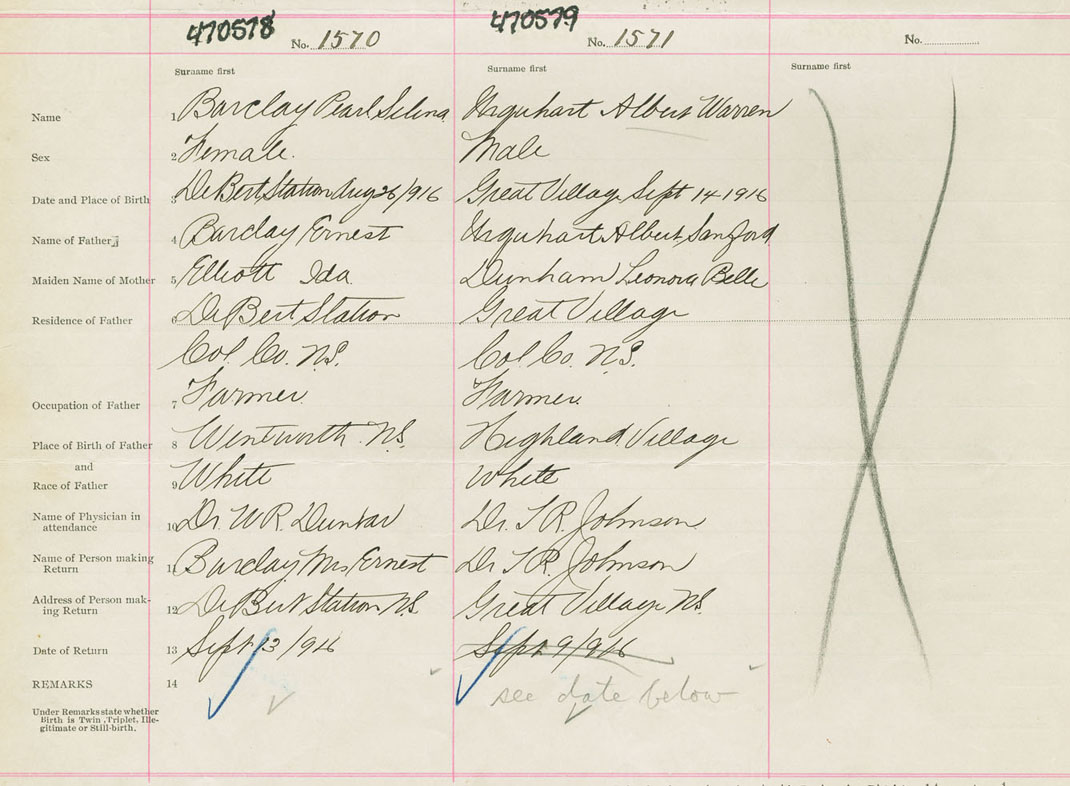 470578 470579
No. 1570 No. 1571 No.
Surname first Surname first Surname first
Name 1 Barclay Pearl Selina Urquhart Albert Warren
Sex 2 Female. Male
Date and Place of Birth 3 DeBert Station Aug 26/916 Great Village Sept 14 1916
Name of Father 4 Barclay Ernest Urquhart Albert Sanford
Maiden Name of Mother 5 Elliott Ida Dunham Leonora Belle
Residence of Father 6 DeBert Station Great Village
Col. Co. N.S. Col. Co. N.S.
Occupation of Father 7 Farmer Farmer
Place of Birth of Father 8 Wentworth N.S. Highland Village
and
Race of Father 9 White White
Name of Physician in
attendance 10 Dr. W.R. Dunbar Dr. T.R. Johnson
Name of Person making
Return 11 Barclay Mrs Ernest Dr T.R. Johnson
Address of Person mak-
ing Return 12 DeBert Station N.S. Great Village N.S.
Date of Return 13 Sept 13/916 Sept 9/916
REMARKS 14 see date below
Under Remarks state whether
Birth is Twin, Triplet, Ille-
gitimate or Still-birth.